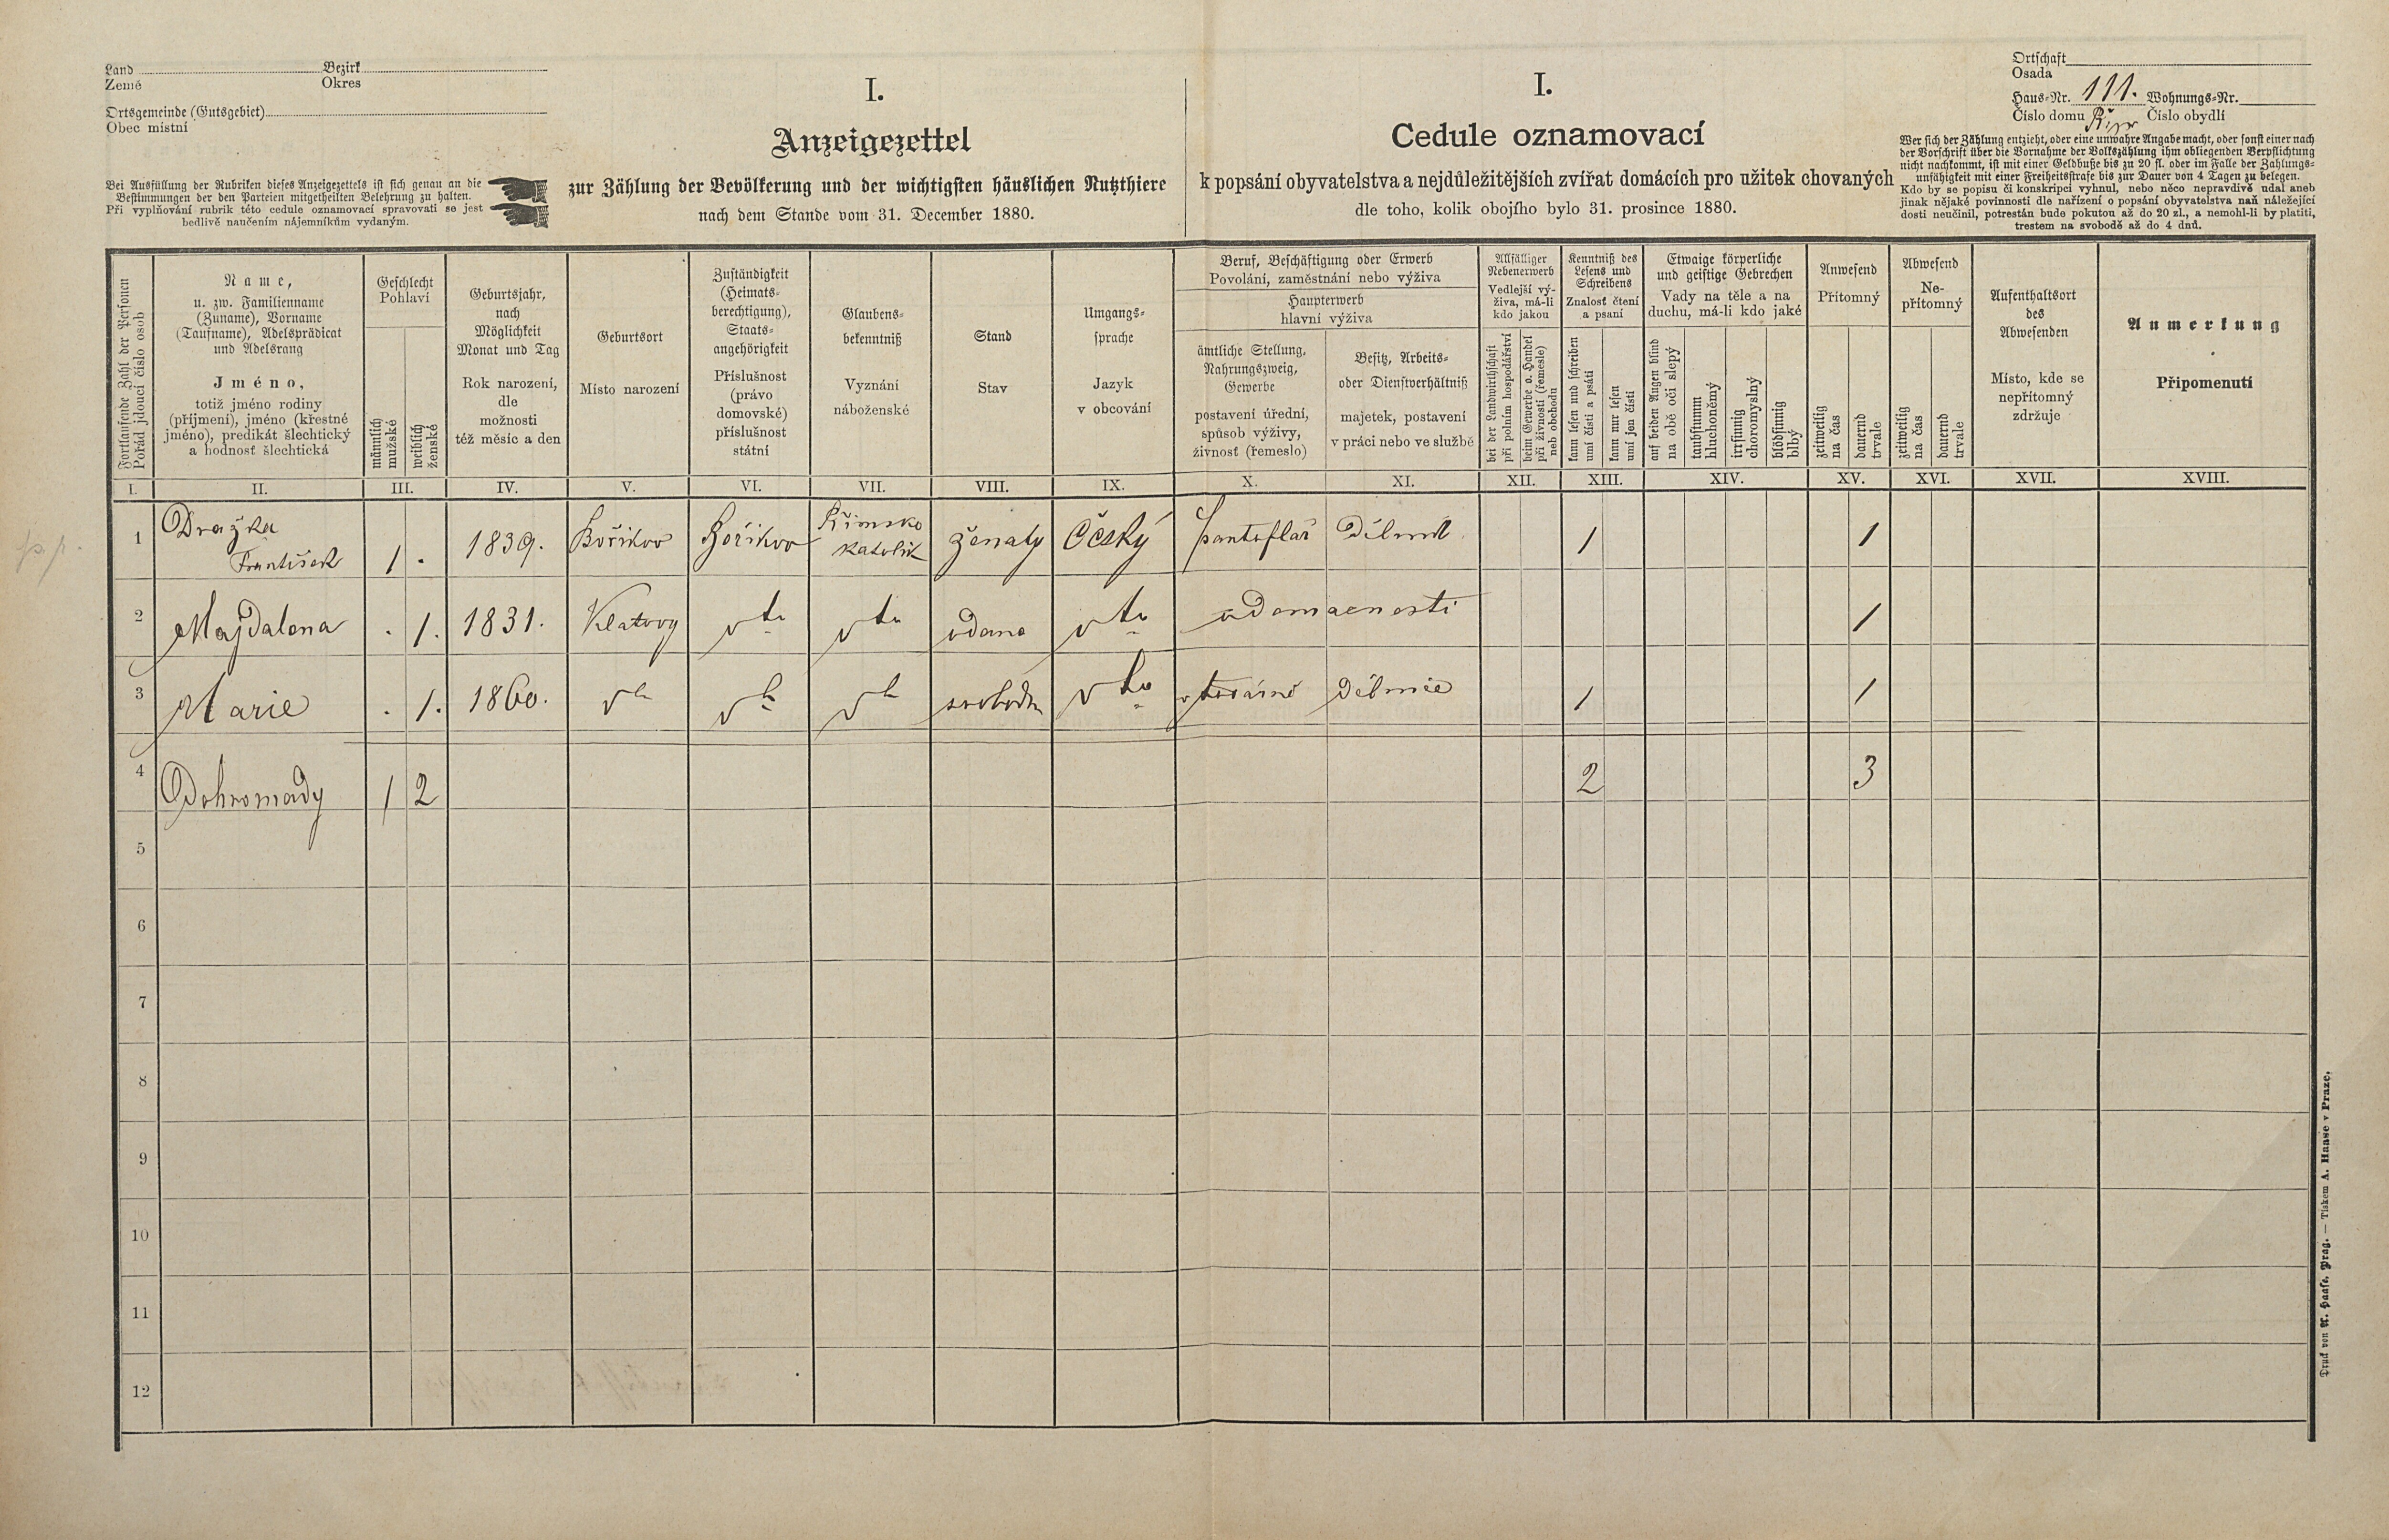 Land Bezirk
Země Okres
Ortsgemeinde (Gutsgebiet)
Obec místní
Bei Ausfüllung der Rubriken dieses Anzeigezettels ist sich genau an die
Bestimmungen der den Parteien mitgetheilten Belehrung zu halten.
Při vyplňování rubrik této cedule oznamovací spravovati se jest
bedlivě naučením nájemníkům vydaným.
I.
Anzeigezettel
zur Zählung der Bevölkerung und der wichtigsten häuslichen Nutzthiere
nach dem Stande vom 31. December 1880.
I.
Cedule oznamovací
k popsání obyvatelstva a nejdůležitějších zvířat domácích pro užitek chovaných
dle toho, kolik obojího bylo 31. prosince 1880.
Ortschaft
Osada
Haus-Nr. 111. Wohnungs-Nr.
Číslo domu Číslo obydlí
Wer sich der Zählung entzieht, oder eine unwahre Angabe macht, oder sonst einer nach
der Vorschrift über die Vornahme der Volkszählung ihm obliegenden Verpflichtung
nicht nachkommt, ist mit einer Geldbuße bis zu 20 fl. oder im Falle der Zahlungs-
unfähigkeit mit einer Freiheitsstrafe bis zur Dauer von 4 Tagen zu belegen.
Kdo by se popisu či konskripci vyhnul, nebo něco nepravdivě udal aneb
jinak nějaké povinnosti dle nařízení o popsání obyvatelstva naň náležející
dosti neučinil, potrestán bude pokutou až do 20 zl., a nemohl-li by platiti,
trestem na svobodě až do 4 dnů.
Fortlaufende Zahl der Personen
Pořád jdoucí číslo osob
Name,
u. zw. Familienname
(Zuname), Vorname
(Taufname), Adelsprädicat
und Adelsrang
Jméno,
totiž jméno rodiny
(příjmení), jméno (křestné
jméno), predikát šlechtický
a hodnost šlechtická
Geschlecht
Pohlaví
männlich
mužské
weiblich
ženské
Geburtsjahr,
nach
Möglichkeit
Monat und Tag
Rok narození,
dle
možnosti
též měsíc a den
Geburtsort
Místo narození
Zuständigkeit
(Heimats-
berechtigung),
Staats-
angehörigkeit
Příslušnost
(právo
domovské)
příslušnost
státní
Glaubens-
bekenntniß
Vyznání
náboženské
Stand
Stav
Umgangs-
sprache
Jazyk
v obcování
Beruf, Beschäftigung oder Erwerb
Povolání, zaměstnání nebo výživa
Haupterwerb
hlavní výživa
ämtliche Stellung,
Nahrungszweig,
Gewerbe
postavení úřední,
spůsob výživy,
živnosť (řemeslo)
Besitz, Arbeits-
oder Dienstverhältniß
majetek, postavení
v práci nebo ve službě
Allfälliger
Nebenerwerb
Vedlejší vý-
živa, má-li
kdo jakou
bei der Landwirthschaft
při polním hospodářství
beim Gewerbe o. Handel
při živnosti (řemesle)
neb obchodu
Kenntniß des
Lesens und
Schreibens
Znalosť čtení
a psaní
kann lesen und schreiben
umí čísti a psáti
kann nur lesen
umí jen čísti
Etwaige körperliche
und geistige Gebrechen
Vady na těle a na
duchu, má-li kdo jaké
auf beiden Augen blind
na obě oči slepý
taubstumm
hluchoněmý
irrsinnig
choromyslný
blödsinnig
blbý
Anwesend
Přítomný
zeitweilig
na čas
dauernd
trvale
Abwesend
Ne-
přítomný
zeitweilig
na čas
dauernd
trvale
Aufenthaltsort
des
Abwesenden
Místo, kde se
nepřítomný
zdržuje
Anmerkung
Připomenutí
I. II. III. IV. V. VI. VII. VIII. IX. X. XI. XII. XIII. XIV. XV. XVI. XVII. XVIII.
1 Dražka
František 1 . 1839. Bořikov Bořikov Římsko
katolík ženatý Český pantoflář Dělník 1 1
2 Majdalena . 1. 1831. Klatovy dto dto vdana dto v Domacnosti 1
3 Marie . 1. 1860. dto dto dto svobodn dto 1 1
4 Dohromady 1 2 2 3
5
6
7
8
9
10
11
12
Druck von A. Haase, Prag. — Tiskem A. Haase v Praze.